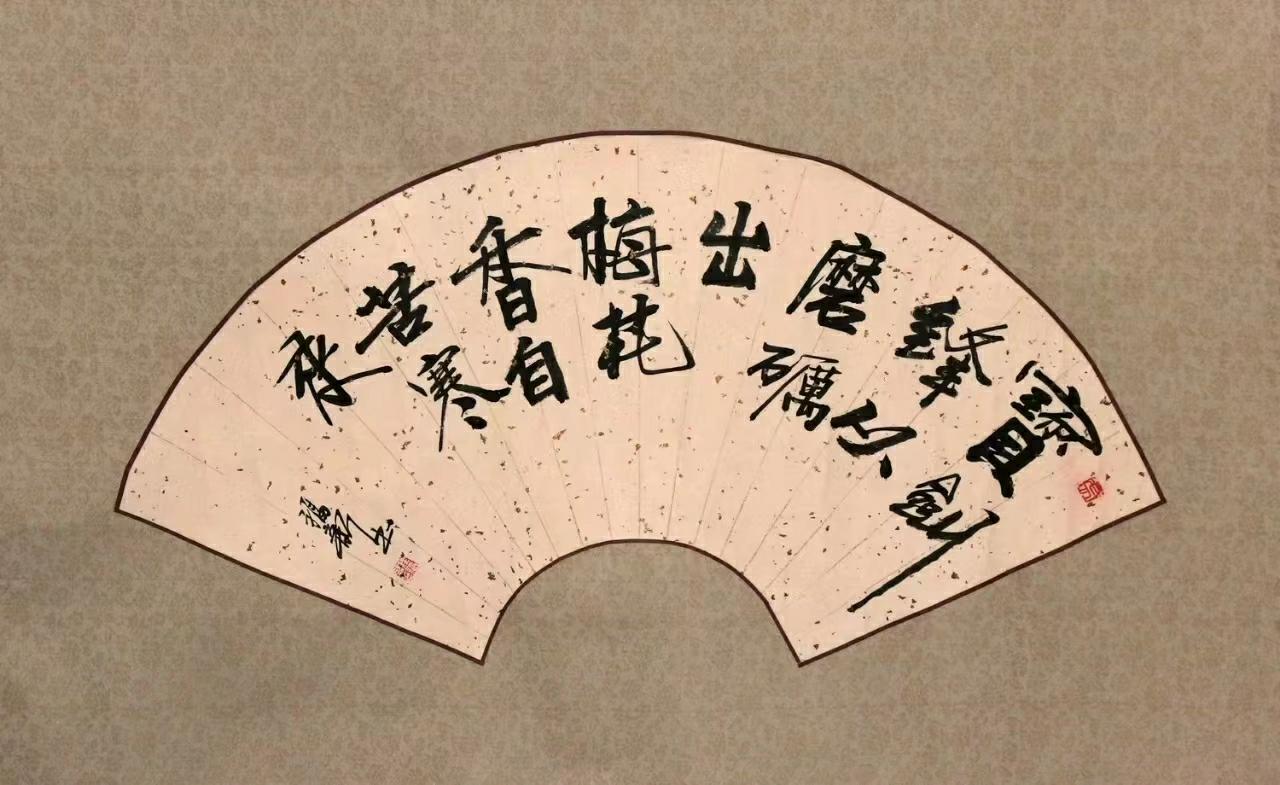 寶劍
鋒从
磨礪
出
梅花
香自
苦寒
来
书